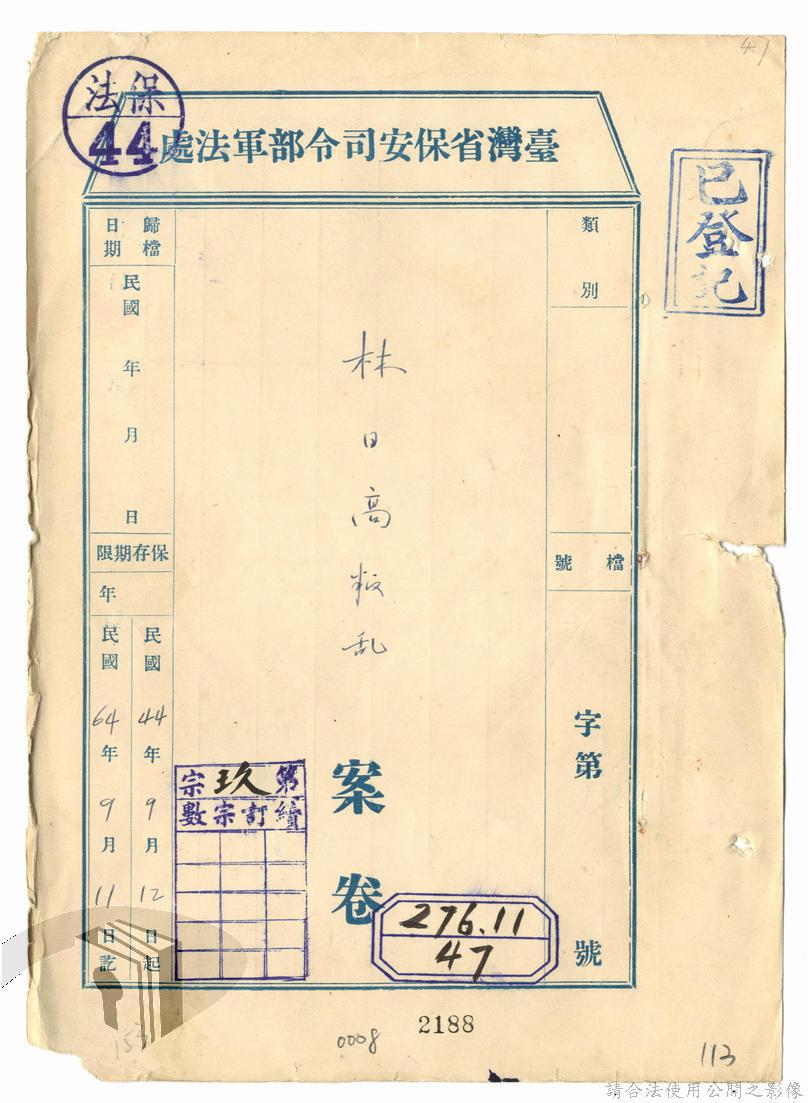 47
法保
44
處法軍部令司安保省灣臺
已登記
類別
檔號
字第
號
林日高叛乱
案卷
歸檔
日期
民國 年 月 日
限期存保
年
民國44年9月12日起
民國64年9月11日訖
宗玖第
數宗訂續
276.11
47
2188
0008
153
113
請合法使用公開之影像